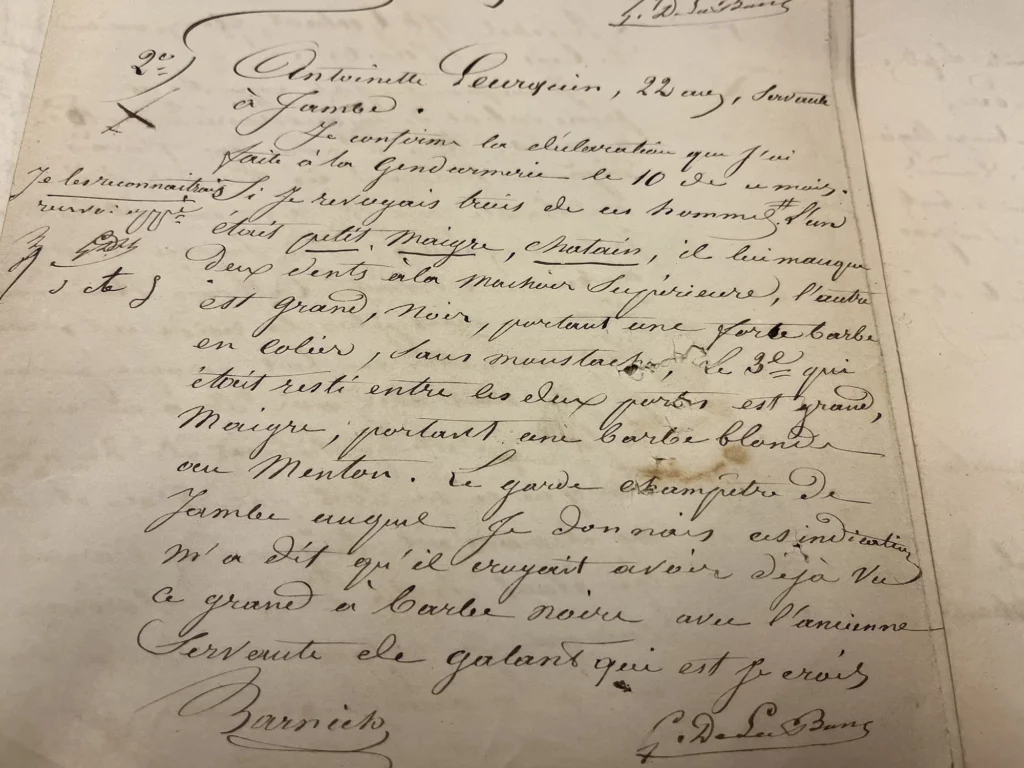 G. De La Bun
2º)
Antoinette Leurquin, 22 ans, servante
à Jambe.
Je confirme la déclaration que j'ai
faite à la Gendarmerie le 10 de ce mois.
Je les reconnaitrais
renvoi app.é
Si je revoyais trois de ces hommes # L'un
était petit, maigre, chatain, il lui manque
deux dents à la machoir Supérieure, l'autre
est grand, noir, portant une forte barbe
en colier, sans moustache, Le 3e qui
était resté entre les deux portes est grand,
Maigre, portant une barbe blonde
au Menton. Le garde champêtre de
Jambe auquel Je donnais ces indications
m'a dit qu'il croyait avoir déjà vu
ce grand à barbe noire avec l'ancienne
Servante de galant qui est je crois
Barnich
G. De La Bun